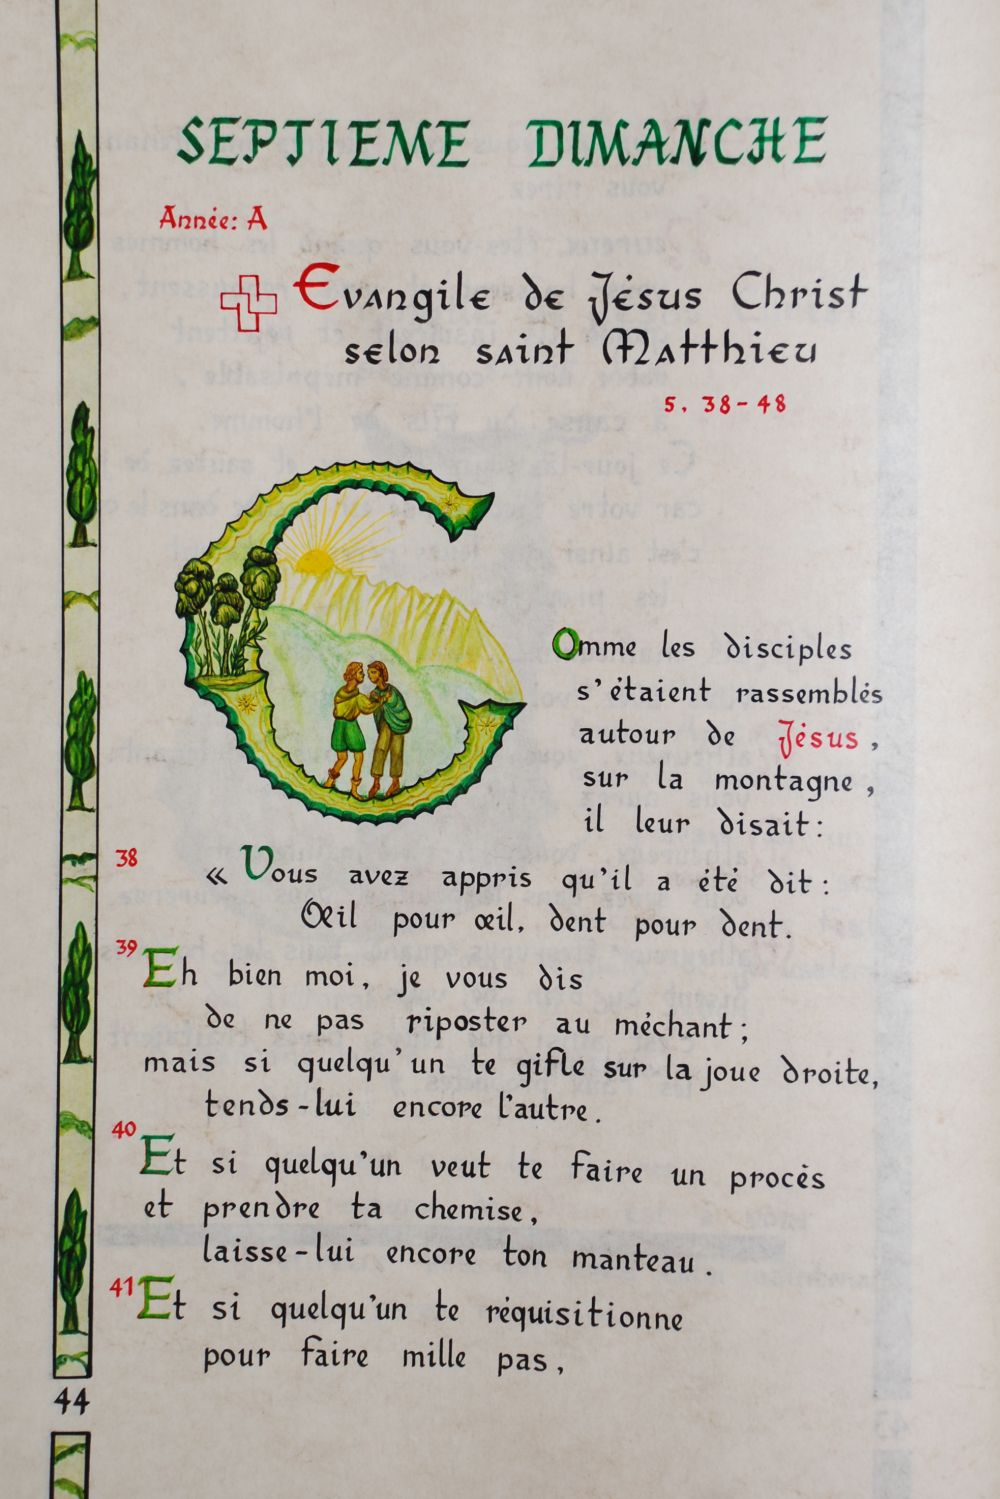 SEPTIEME DIMANCHE
Année: A
Evangile de Jésus Christ
selon saint Matthieu
5, 38-48
Comme les disciples
s'étaient rassemblés
autour de Jésus,
sur la montagne,
il leur disait:
38
« Vous avez appris qu'il a été dit :
Œil pour œil, dent pour dent.
39
Eh bien moi, je vous dis
de ne pas riposter au méchant ;
mais si quelqu'un te gifle sur la joue droite,
tends-lui encore l'autre.
40
Et si quelqu'un veut te faire un procès
et prendre ta chemise,
laisse-lui encore ton manteau.
41
Et si quelqu'un te réquisitionne
pour faire mille pas,
44